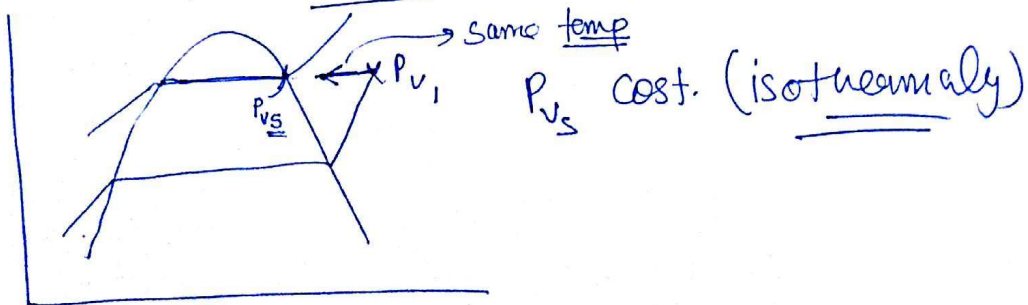 same temp
P_V1
P_VS
P_VS cost. (isothermaly)